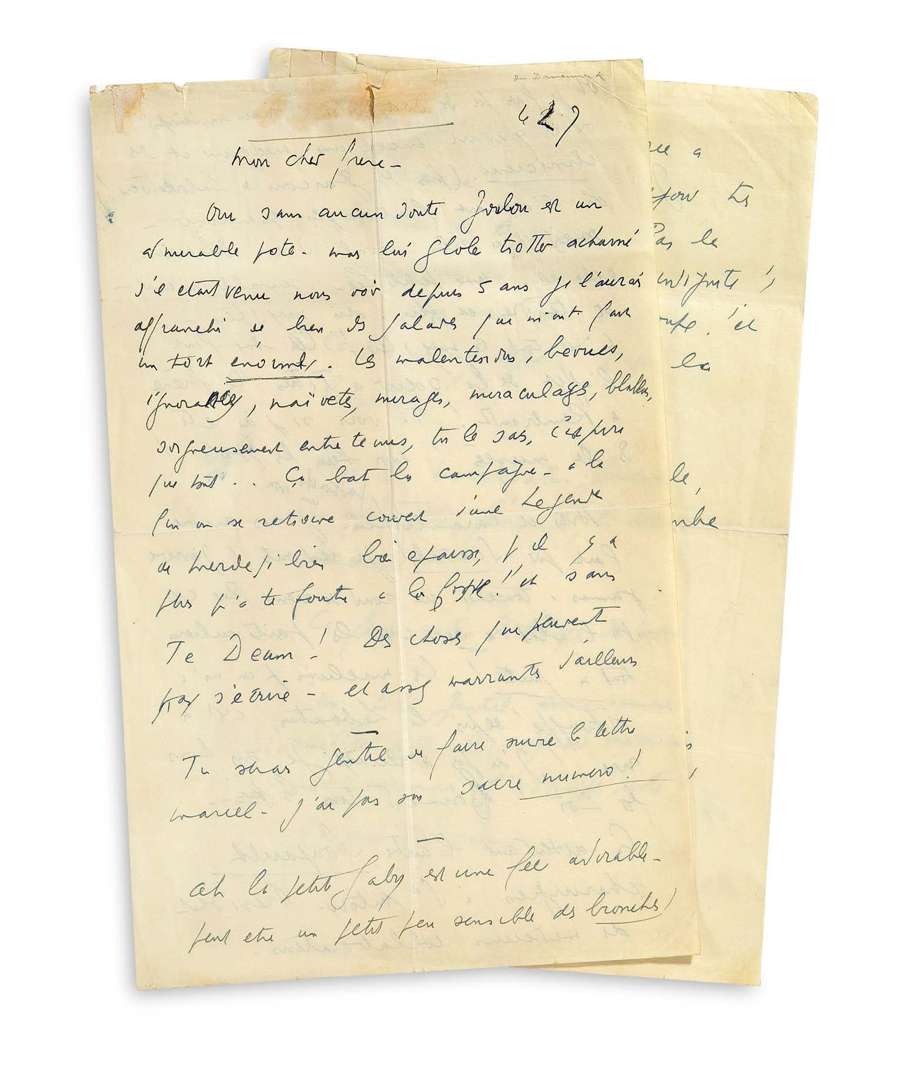 Mon cher frere -
Oui sans aucun doute Joulou est un
admirable pote - mais lui globe trotter acharné
s'il etait venu nous voir depuis 5 ans je l'aurais
affranchi de bien des salades qui m'ont fait
un tort énorme. Les malentendus, bevues,
ignorances, naïvetés, mirages, miraculages, blablas,
soigneusement entretenus, tu le sais, c'est pire
que tout... Ça bat la campagne - à la
fin on se retrouve couvert d'une Legende
de merde si bien bien epaisse, qu'il y a
plus qu'à te foutre à la fosse !! et sans
Te Deum ! Des choses qui peuvent
pas s'écrire - et assez warrants d'ailleurs
Tu seras gentil de faire suivre la lettre
marcel - j'ai pas son sacre numero !
Ah la petite Gaby est une fée adorable -
peut etre un petit peu sensible des bronches !
ree a
pour tes
Pas le
indignité !
et
la